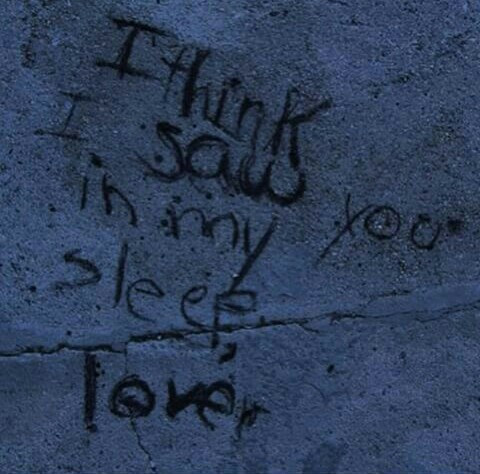 I think
I saw you
in my
sleep,
lover